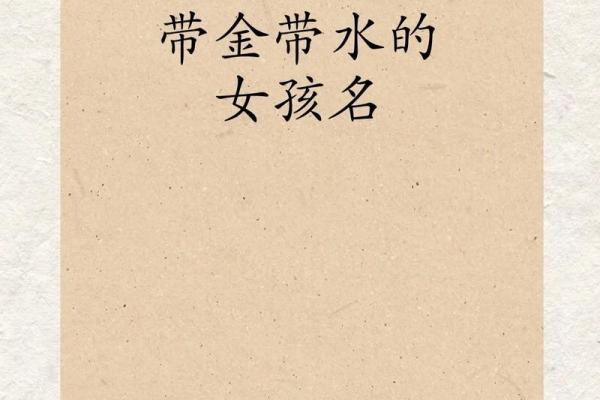 带金带水的
女孩名